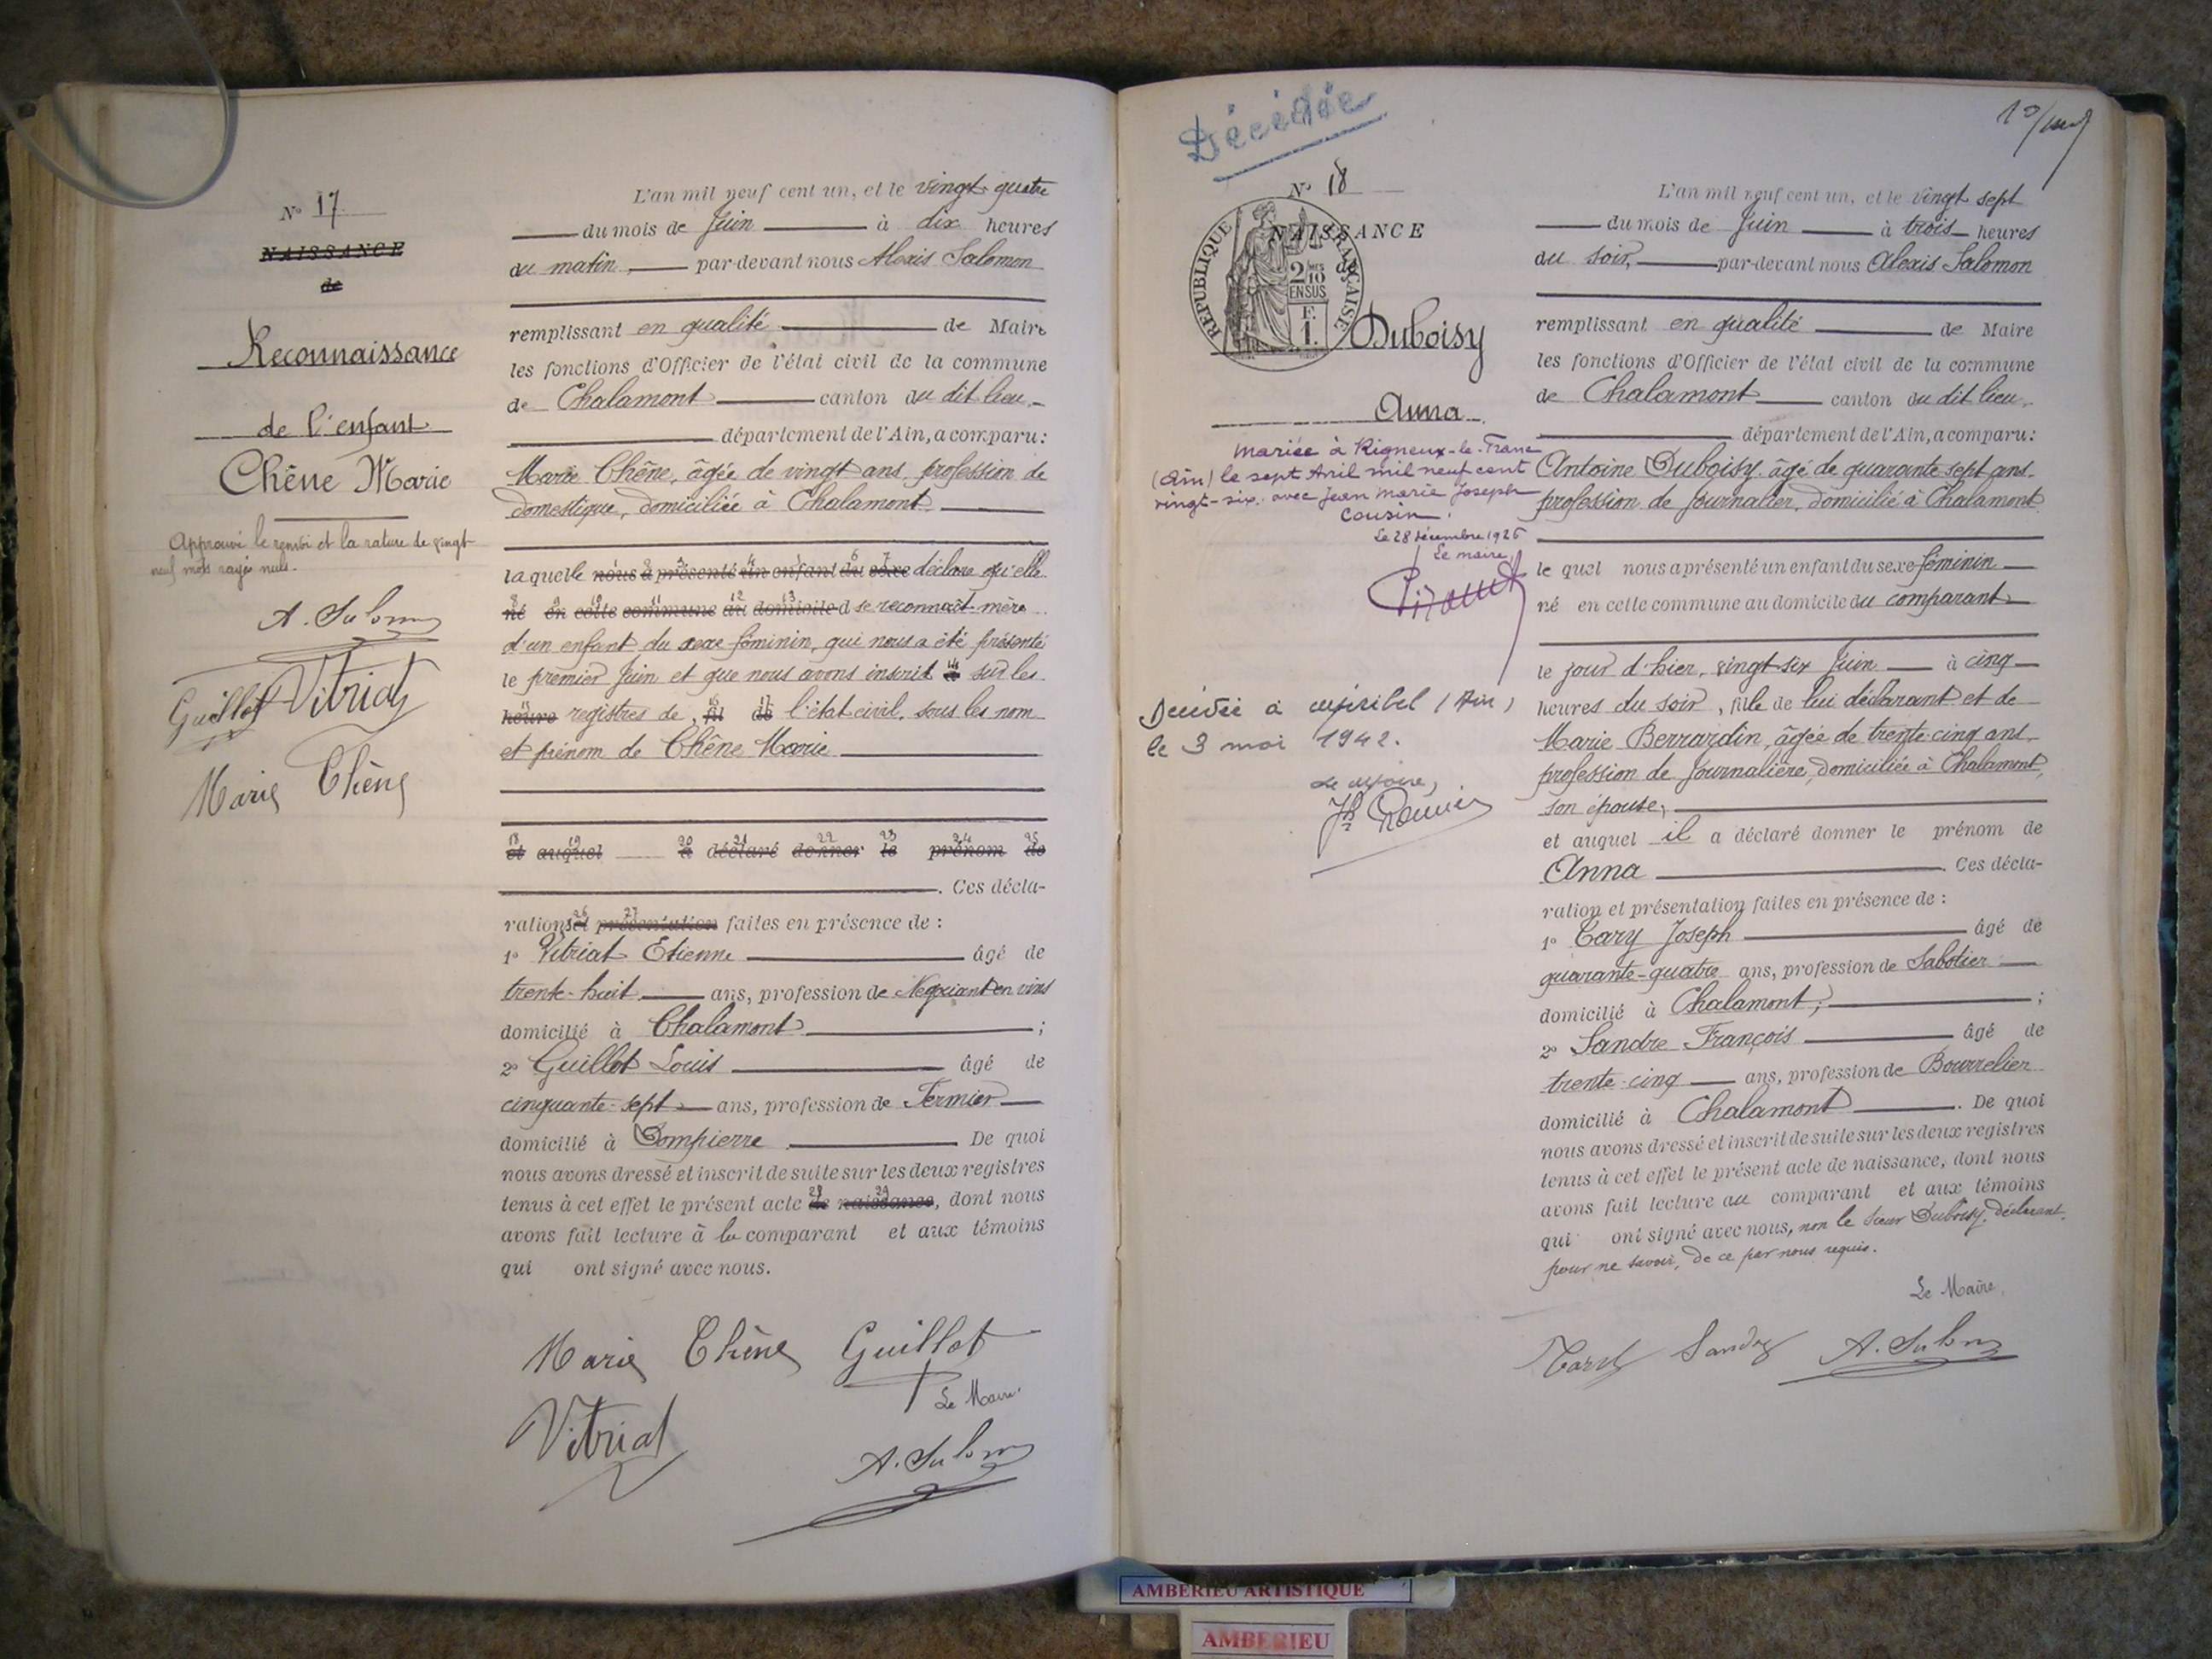 N° 17
NAISSANCE
de
Reconnaissance
de l'enfant
Chêne Marie
Approuvé le renvoi et la rature de vingt
neuf mots rayés nuls.
A. Salomon
Guillot Vitriat
Marie Chêne
L'an mil neuf cent un, et le vingt-quatre
du mois de Juin à dix heures
du matin, par-devant nous Alexis Salomon
remplissant en qualité de Maire
les fonctions d'Officier de l'état civil de la commune
de Chalamont canton du dit lieu
département de l'Ain, a comparu:
Marie Chêne, âgée de vingt ans, profession de
domestique, domiciliée à Chalamont
laquelle nous a présenté un enfant du sexe déclare qu'elle
né en cette commune au domicile d se reconnaît mère
d'un enfant du sexe féminin, qui nous a été présenté
le premier Juin et que nous avons inscrit à sur les
heure registres de, fil de l'état civil, sous les nom
et prénom de Chêne Marie
et auquel a déclaré donner le prénom de
. Ces décla-
rations et présentation faites en présence de :
1° Vitriat Etienne âgé de
trente-huit ans, profession de Négociant en vins
domicilié à Chalamont ;
2° Guillot Louis âgé de
cinquante-sept ans, profession de Fermier
domicilié à Dompierre De quoi
nous avons dressé et inscrit de suite sur les deux registres
tenus à cet effet le présent acte de naissance, dont nous
avons fait lecture à la comparant et aux témoins
qui ont signé avec nous.
Marie Chêne Guillot
Le Maire
Vitriat
A. Salomon
Décédée
N° 18
NAISSANCE
de
REPUBLIQUE FRANÇAISE
2/10 EN SUS
F. 1.
Duboisy
Anna
Mariée à Rigneux-le-Franc
(Ain) le sept Avril mil neuf cent
vingt-six. avec Jean Marie Joseph
Cousin.
Le 28 décembre 1926
Le maire,
Décédée à Miribel (Ain)
le 3 mai 1942.
Le Maire,
L'an mil neuf cent un, et le vingt sept
du mois de Juin à trois heures
du soir, par-devant nous Alexis Salomon
remplissant en qualité de Maire
les fonctions d'Officier de l'état civil de la commune
de Chalamont canton du dit lieu
département de l'Ain, a comparu:
Antoine Duboisy âgé de quarante-sept ans
profession de Journalier, domicilié à Chalamont
le quel nous a présenté un enfant du sexe féminin
né en cette commune au domicile du comparant
le jour d'hier, vingt-six Juin à cinq
heures du soir, fille de lui déclarant et de
Marie Berrardin, âgée de trente-cinq ans
profession de Journalière, domiciliée à Chalamont,
son épouse,
et auquel il a déclaré donner le prénom de
Anna . Ces décla-
ration et présentation faites en présence de :
1° Cary Joseph âgé de
quarante-quatre ans, profession de Sabotier
domicilié à Chalamont; ;
2° Sandre François âgé de
trente-cinq ans, profession de Bourrelier
domicilié à Chalamont . De quoi
nous avons dressé et inscrit de suite sur les deux registres
tenus à cet effet le présent acte de naissance, dont nous
avons fait lecture au comparant et aux témoins
qui ont signé avec nous, non le sieur Duboisy, déclarant,
pour ne savoir, de ce par nous requis.
Le Maire,
A. Salomon
AMBERIEU ARTISTIQUE
AMBERIEU